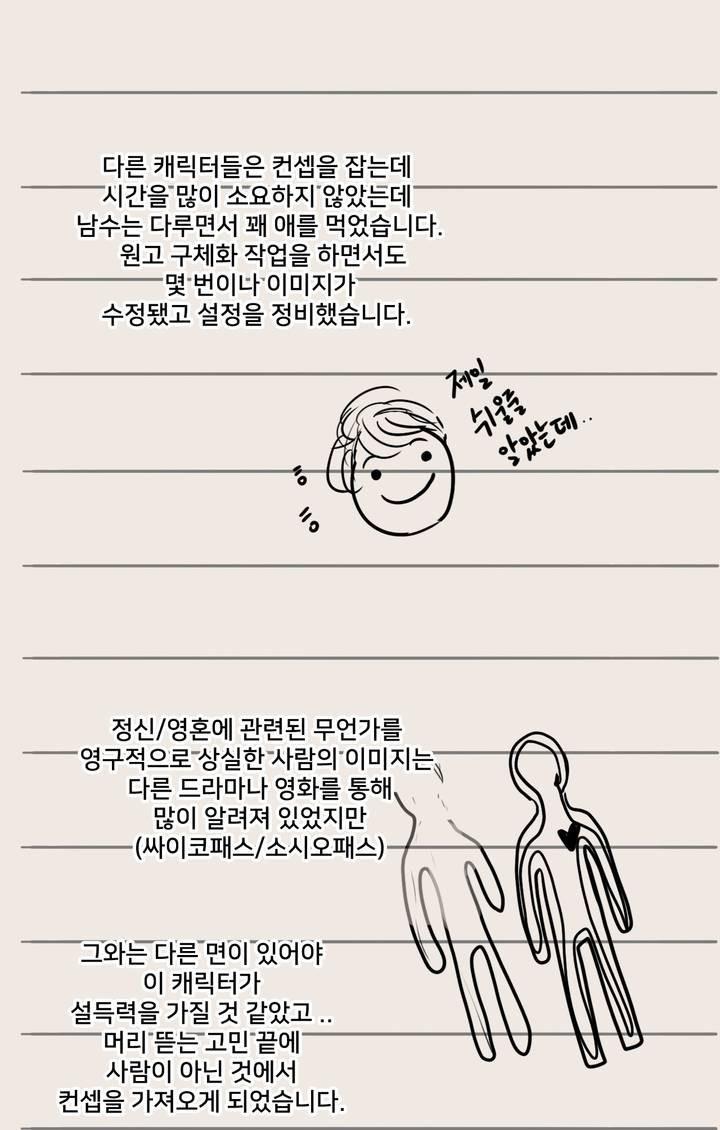 다른 캐릭터들은 컨셉을 잡는데
시간을 많이 소요하지 않았는데
남수는 다루면서 꽤 애를 먹었습니다.
원고 구체화 작업을 하면서도
몇 번이나 이미지가
수정됐고 설정을 정비했습니다.
제일
쉬울줄
알았는데..
정신/영혼에 관련된 무언가를
영구적으로 상실한 사람의 이미지는
다른 드라마나 영화를 통해
많이 알려져 있었지만
(싸이코패스/소시오패스)
그와는 다른 면이 있어야
이 캐릭터가
설득력을 가질 것 같았고 ..
머리 뜯는 고민 끝에
사람이 아닌 것에서
컨셉을 가져오게 되었습니다.